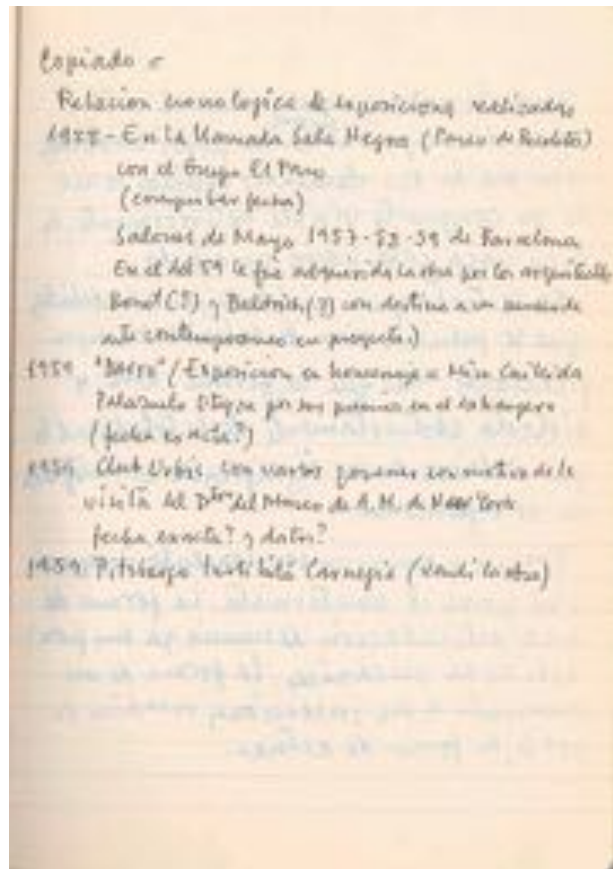 Copiado
Relacion cronologica de exposiciones realizadas
- En la llamada Sala Negra (Paseo de Recoletos)
con el Grupo El Paso
(comprobar fecha)
Salones de Mayo 1957-58-59 de Barcelona
En el del 59 le fue adquirida la obra por los arquitectos
Bonet (?) y (?) con destino a un museo de
arte contemporaneo en proyecto.)
1959 (Exposicion en homenaje a Miro Chillida
Palazuelo por sus premios en el extranjero
(fecha exacta?)
Club Urbis con varios con motivo de la
visita del Dtor del Museo de A. M. de New York
fecha exacta? y datos?
1959? Instituto Carnegie (vendi la obra)